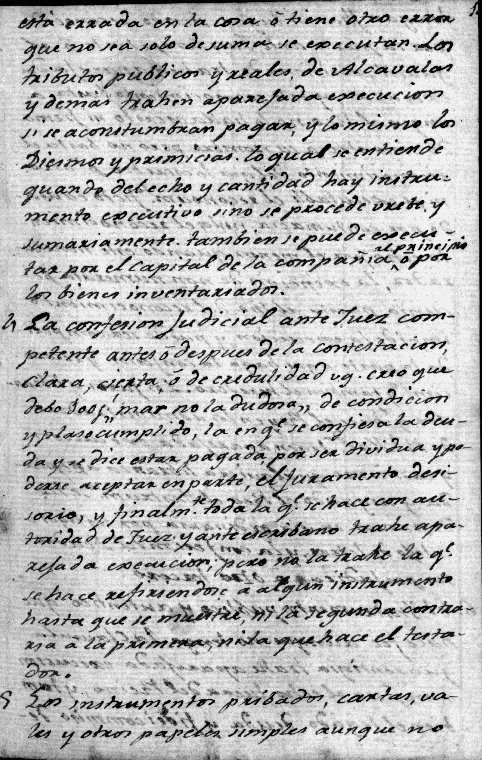 està errada en la cosa ò tiene otro error
que no sea solo de suma se executan. Los
tributos publicos y reales, de Alcavalas
y demas trahen aparejada execucion
si se acostumbran pagar, y lo mismo los
Diesmos y primicias. lo qual se entiende
quando del echo y cantidad hay instru-
mento executivo sino se procede vrebe. y
sumariamente. tambien se puede execu-
al principio
tar por el capital de la compañia ò por
los bienes inventariados.
4 La confesion Judicial ante Juez com-
petente antes ò despues de la contestacion,
clara, cierta ò de credulidad vg. creo que
debo 300 mar no la dudosa, de condicion
y plaso cumplido, la en q.e se confiesa la deu-
da y se dice estar pagada, por ser dividua y po-
derse aceptar en parte, el Juramento deci-
sorio, y finalm.te toda la q.e se hace con au-
toridad de Juez y ante escribano trahe apa-
rejada execucion, pero no la trahe la q.e
se hace refiriendose a algun instrumento
hasta que se muestre, ni la segunda contra-
ria à la primera, ni la que hace el testa-
dor.
5 Los instrumentos pribados, cartas, va-
les y otros papeles simples aunque no